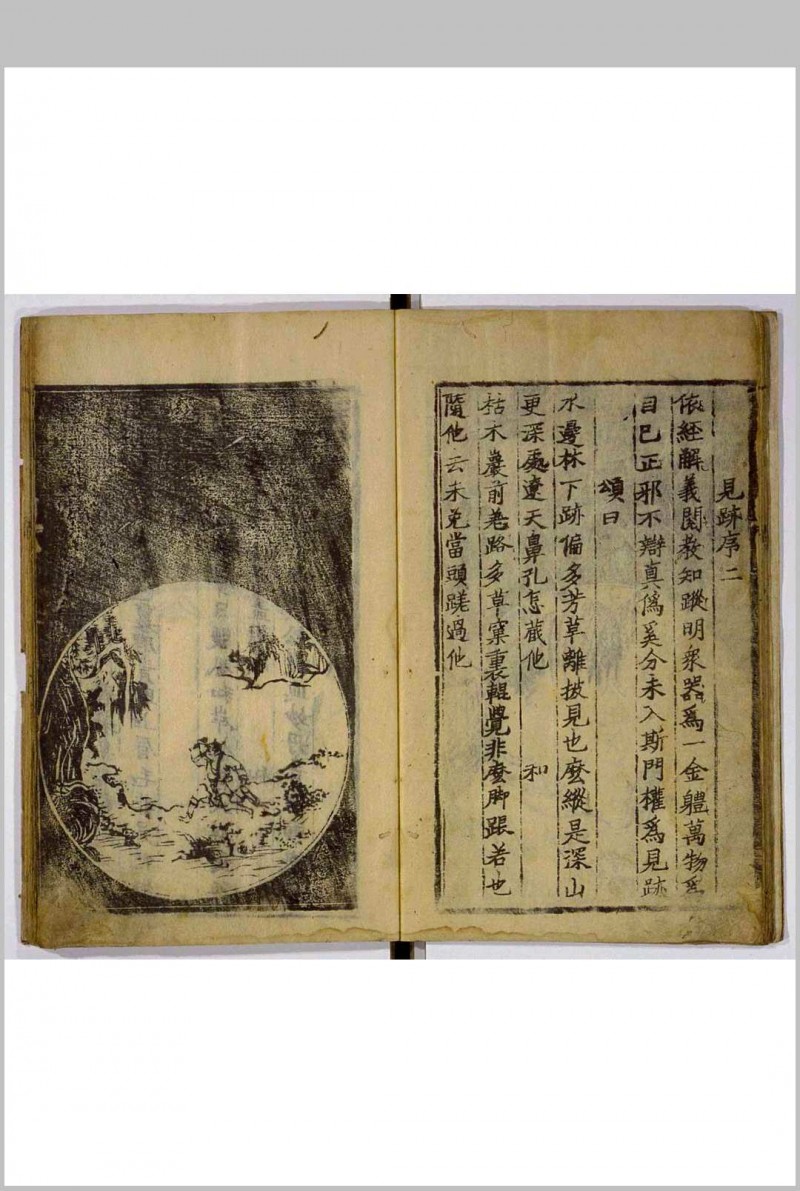 見跡序二
依經解義閱教知蹤明衆器爲一金軆萬物爲
自己正邪不辯真僞奚分未入斯門權爲見跡
頌曰
水邊林下跡偏多芳草離披見也麼縱是深山
更深處遼天鼻孔怎藏他 和
枯木巖前差路多草窠裏輥覺非麼脚跟若也
隨他去未免當頭蹉過他